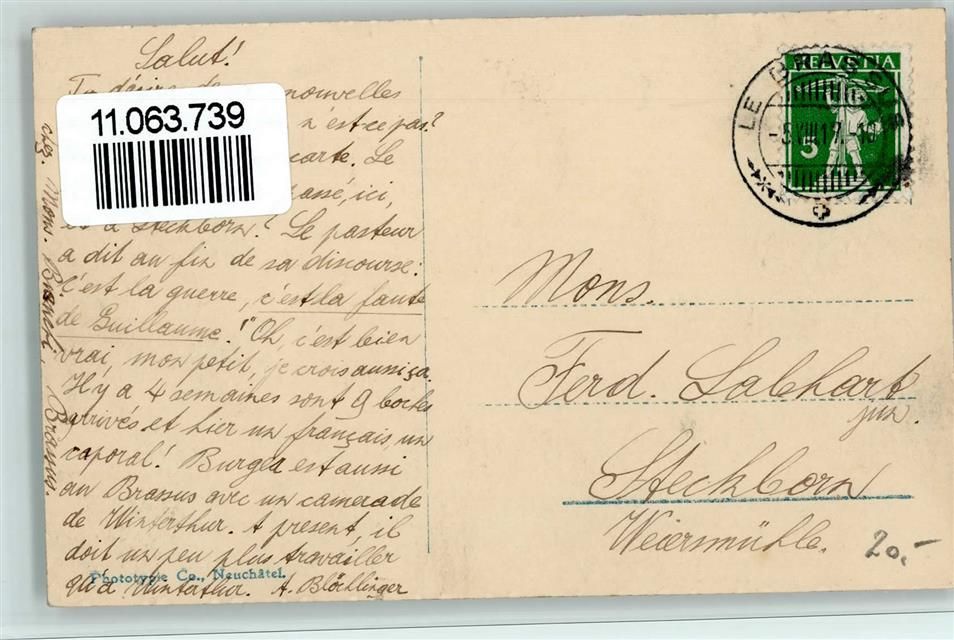 Salut!
Tu désire nouvelles
n'estce pas?
carte. Le
passé, ici,
et à Steckborn? Le pasteur
a dit au fin de sa discourse:
C'est la guerre, c'est la faute
de Guillaume!" Oh, c'est bien
vrai, mon petit, je crois aussi ça.
Il y a 4 semaines sont 9 boches
arrivés et hier un français, un
caporal! Burger est aussi
au Brassus avec un camerade
de Winterthur. A présent, il
doit un peu plus travailler
qu'à Winterthur. A. Blöchlinger
chez Mons. Brassus.
11.063.739
Phototypie Co., Neuchâtel.
HELVETIA
5
LE BRASSUS
VIII
Mons.
Ferd. Labhart
jun.
Steckborn
Weiermühle.
20.-